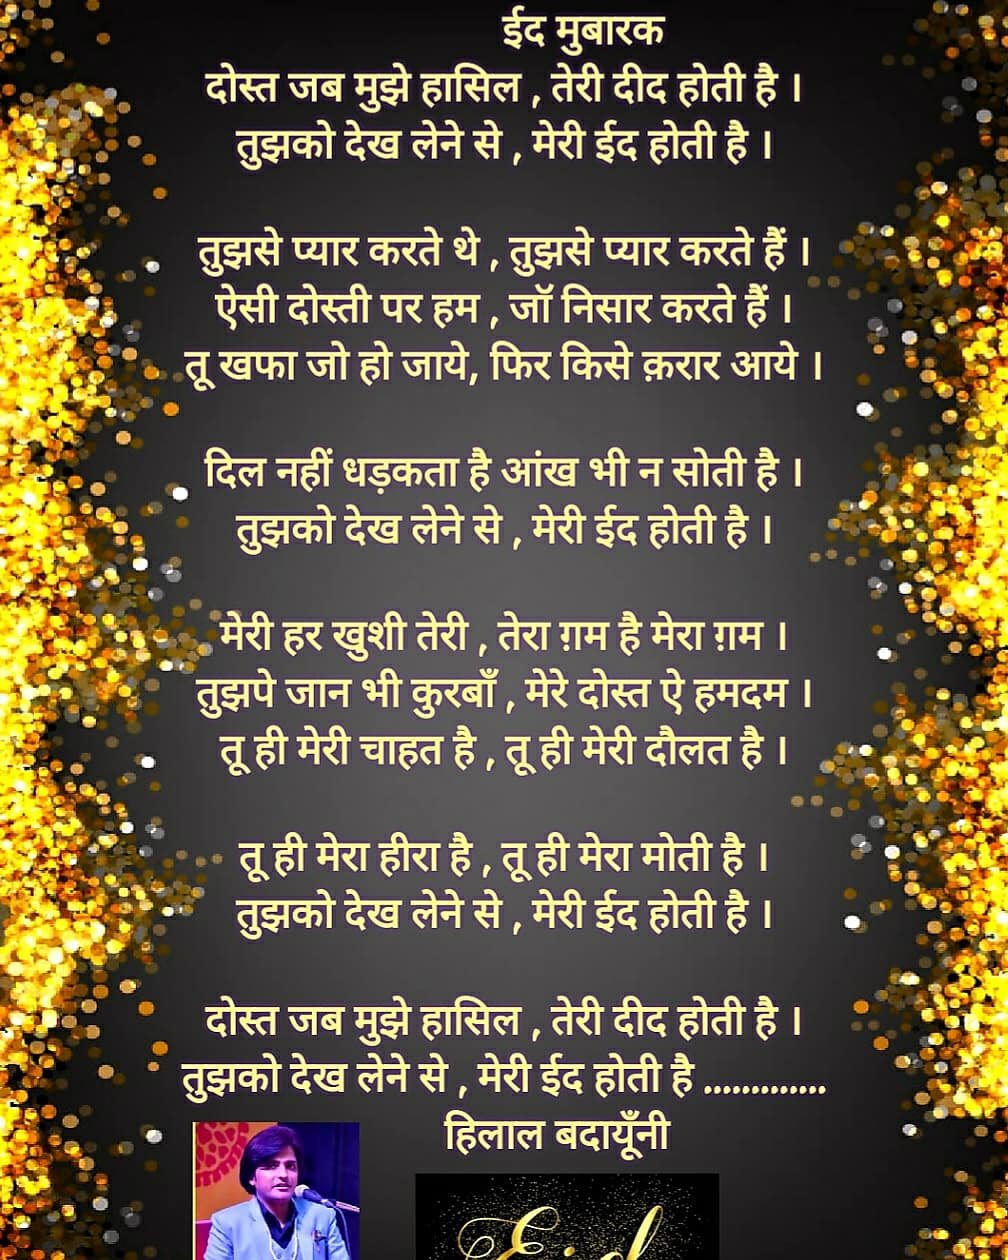 ईद मुबारक
दोस्त जब मुझे हासिल , तेरी दीद होती है ।
तुझको देख लेने से , मेरी ईद होती है ।
तुझसे प्यार करते थे , तुझसे प्यार करते हैं ।
ऐसी दोस्ती पर हम , जॉ निसार करते हैं ।
तू खफा जो हो जाये, फिर किसे क़रार आये ।
दिल नहीं धड़कता है आंख भी न सोती है ।
तुझको देख लेने से , मेरी ईद होती है ।
मेरी हर खुशी तेरी , तेरा ग़म है मेरा ग़म ।
तुझपे जान भी कुरबाँ , मेरे दोस्त ऐ हमदम ।
तू ही मेरी चाहत है , तू ही मेरी दौलत है ।
तू ही मेरा हीरा है , तू ही मेरा मोती है ।
तुझको देख लेने से , मेरी ईद होती है ।
दोस्त जब मुझे हासिल , तेरी दीद होती है ।
तुझको देख लेने से , मेरी ईद होती है .............
हिलाल बदायूँनी
Eid